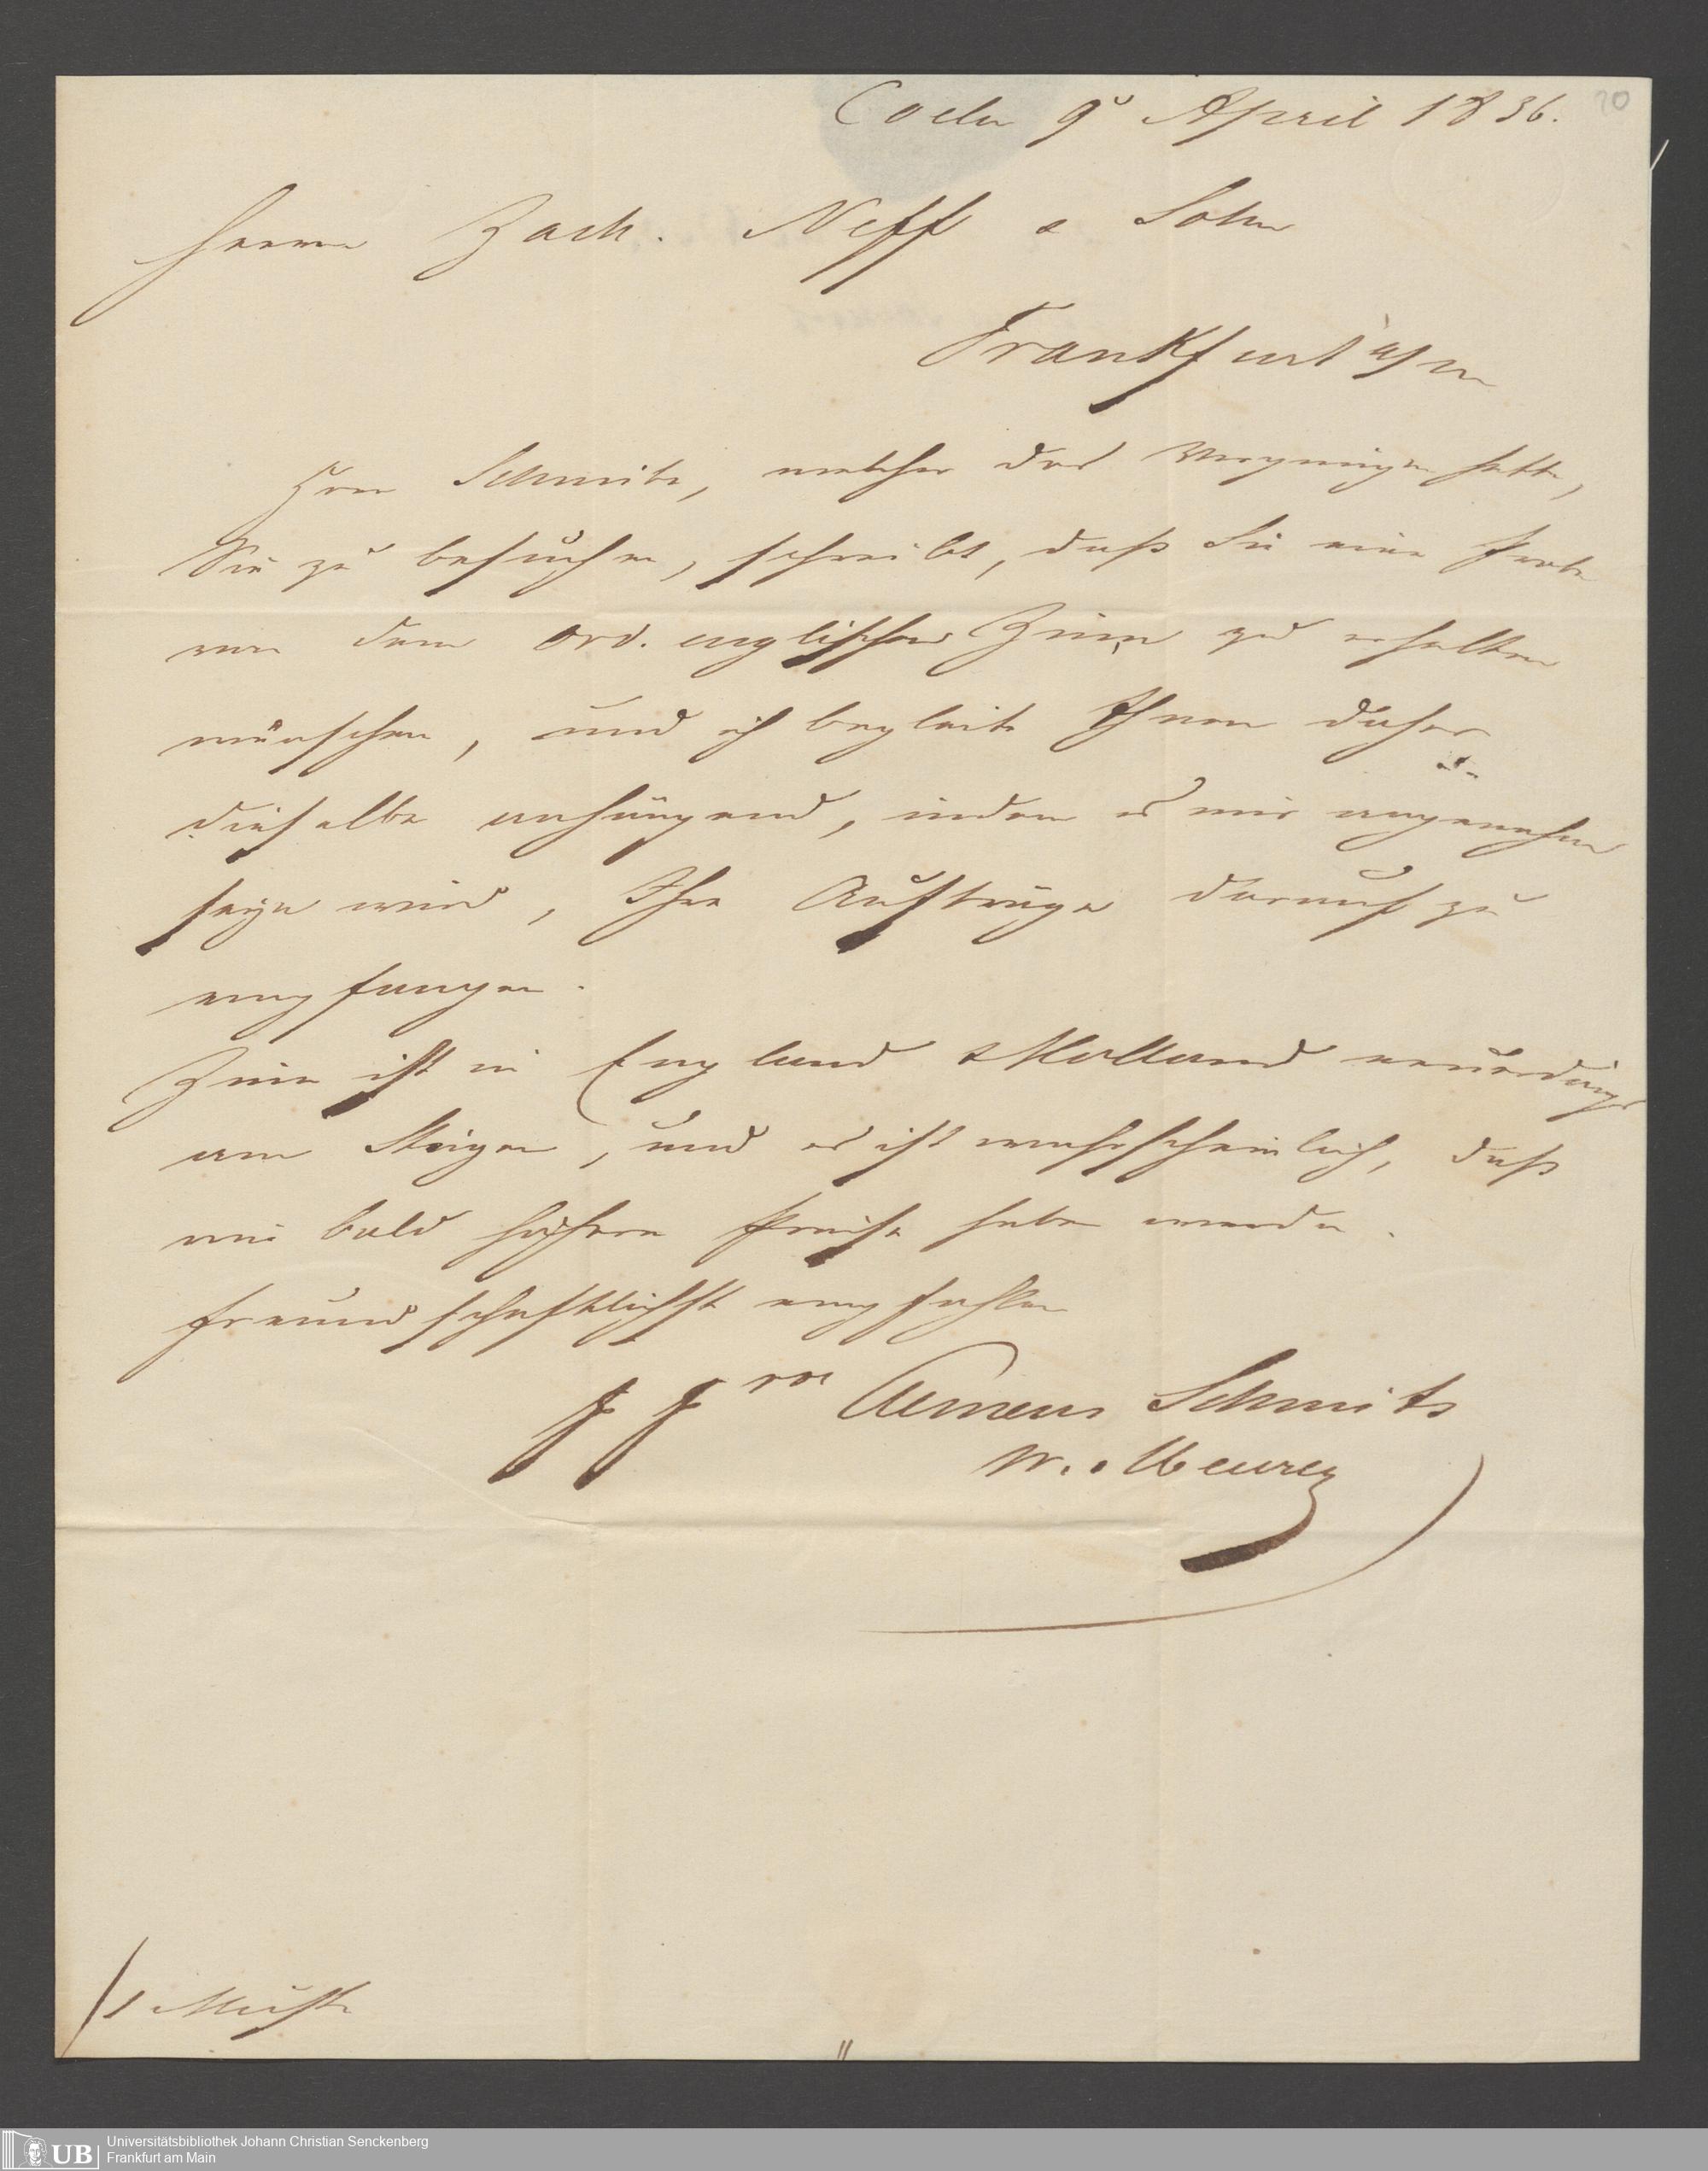 Coeln 9ͦ April 1836.
20
Herren Zach. Neff & Sohn
Frankfurt a/m
Herr Schmitz, welcher das Vergnügen hatte,
Sie zu besuchen, schreibt, daß Sie eine Probe
von dem ord. englischen Zinn zu erhalten
wünschen, und ich begleite Ihnen daher
dieselbe anhängend, indem es mir angenehm
seyn wird, Ihre Aufträge darauf zu
empfangen.
Zinn ist in England & Holland neuerdings
am Steigen, und es ist wahrscheinlich, daß
wir bald höhere Preise haben werden.
Freundschaftlichst empfohlen
Clemens Schmitz
W. Meurer
/1 Muster
Universitätsbibliothek Johann Christian Senckenberg
Frankfurt am Main
UB